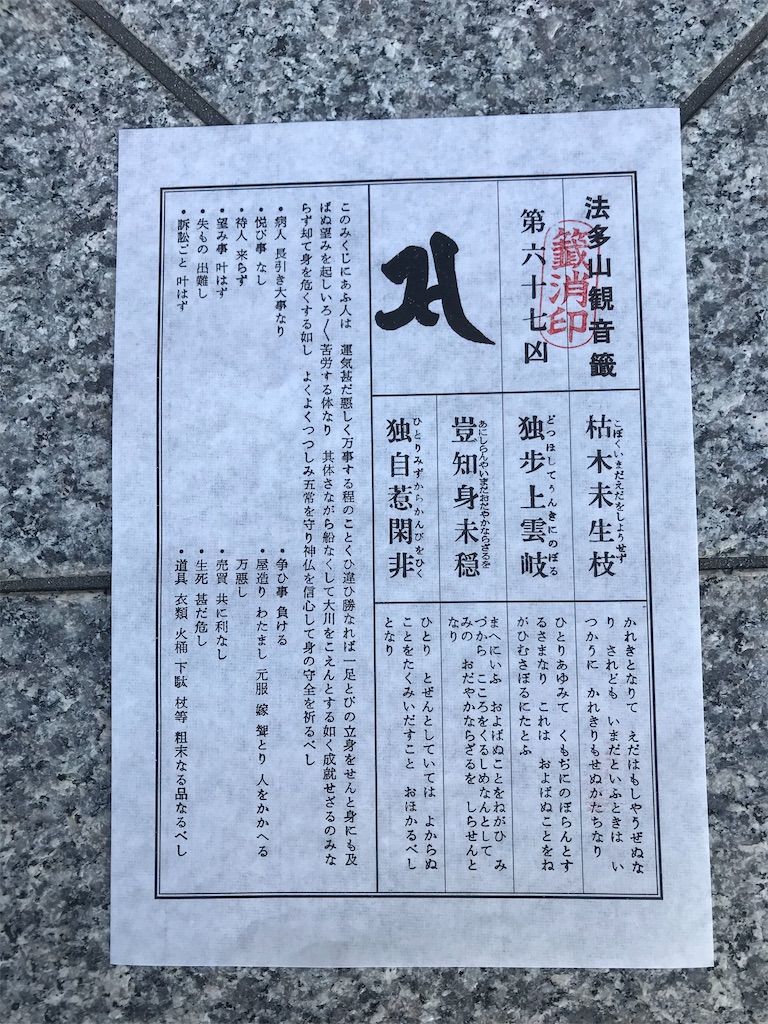 法多山観音籤
籤消印
第六十七凶
枯木未生枝
こぼくいまだえだをしようせず
独歩上雲岐
どつほしてうんきにのぼる
豈知身未穏
あにしらんやいまだおだやかならざるを
独自惹閑非
ひとりみずからかんびをひく
かれきとなりて えだはもしやうぜぬな
り されども いまだといふときは い
つかうに かれきりもせぬかたちなり
ひとりあゆみて くもぢにのぼらんとす
るさまなり これは およばぬことをね
がひむさぼるにたとふ
まへにいふ およばぬことをねがひ み
づから こころをくるしめなんとして
みの おだやかならざるを しらせんと
なり
ひとり とぜんとしていては よからぬ
ことをたくみいだすこと おほかるべし
となり
このみくじにあふ人は 運気甚だ悪しく万事する程のことくひ違ひ勝なれば一足とびの立身をせんと身にも及
ばぬ望みを起しいろ〳〵苦労する体なり 其体さながら船なくして大川をこえんとする如く成就せざるのみな
らず却て身を危くする如し よくよくつつしみ五常を守り神仏を信心して身の守全を祈るべし
・病人 長引き大事なり
・悦び事 なし
・待人 来らず
・望み事 叶はず
・失もの 出難し
・訴訟ごと 叶はず
・争ひ事 負ける
・屋造り わたまし 元服 嫁 聟とり 人をかかへる
万悪し
・売買 共に利なし
・生死 甚だ危し
・道具 衣類 火桶 下駄 杖等 粗末なる品なるべし